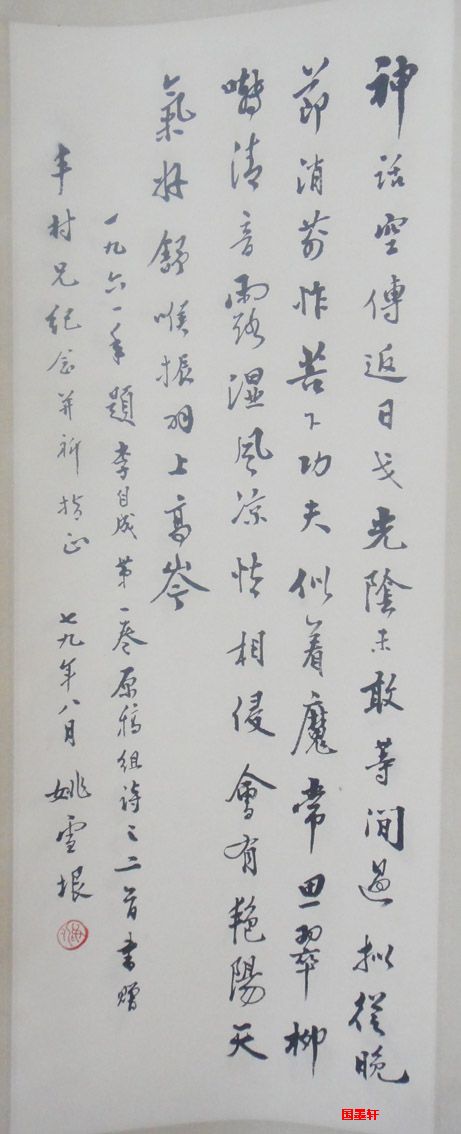 神話空傳返日戈光陰未敢等閒過拟從晚
節消前怍苦下功夫似着魔常思翠柳
囀清音雨露濕风凉怯相侵會有艳陽天
氣好舒喉振羽上高岑
一九六一年題李自成第一卷原稿組詩之二首書贈
丰村兄紀念並祈指正 七九年八月 姚雪垠
国墨轩